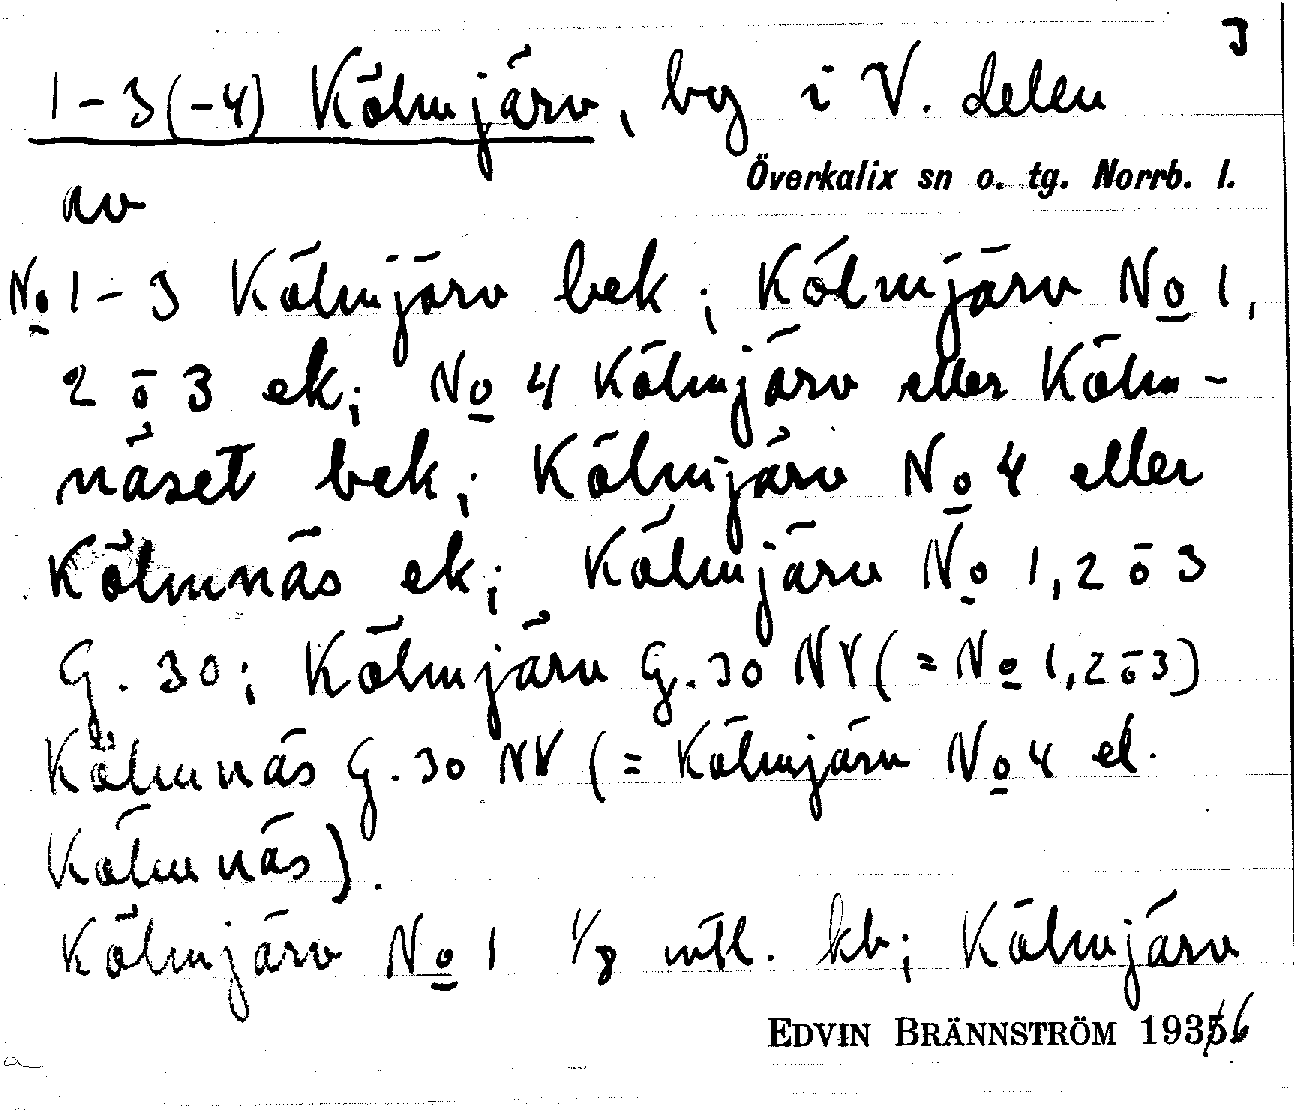 3
1-3(-4) Kölmjärv, by i V. delen
Överkalix sn o. tg. Norrb. l.
av
No 1-3 Kölmjärv bek; Kölmjärv No 1,
2 o 3 ek; No 4 Kölmjärv eller Kölm-
näset bek; Kölmjärv No 4 eller
Kölmnäs ek; Kölmjärv No 1, 2 o 3
G. 30; Kölmjärv G. 30 NV (= No 1, 2 o 3)
Kölmnäs G. 30 NV (= Kölmjärv No 4 el.
Kölmnäs).
Kölmjärv No 1 1/8 mtl. kb; Kölmjärv
EDVIN BRÄNNSTRÖM 1936